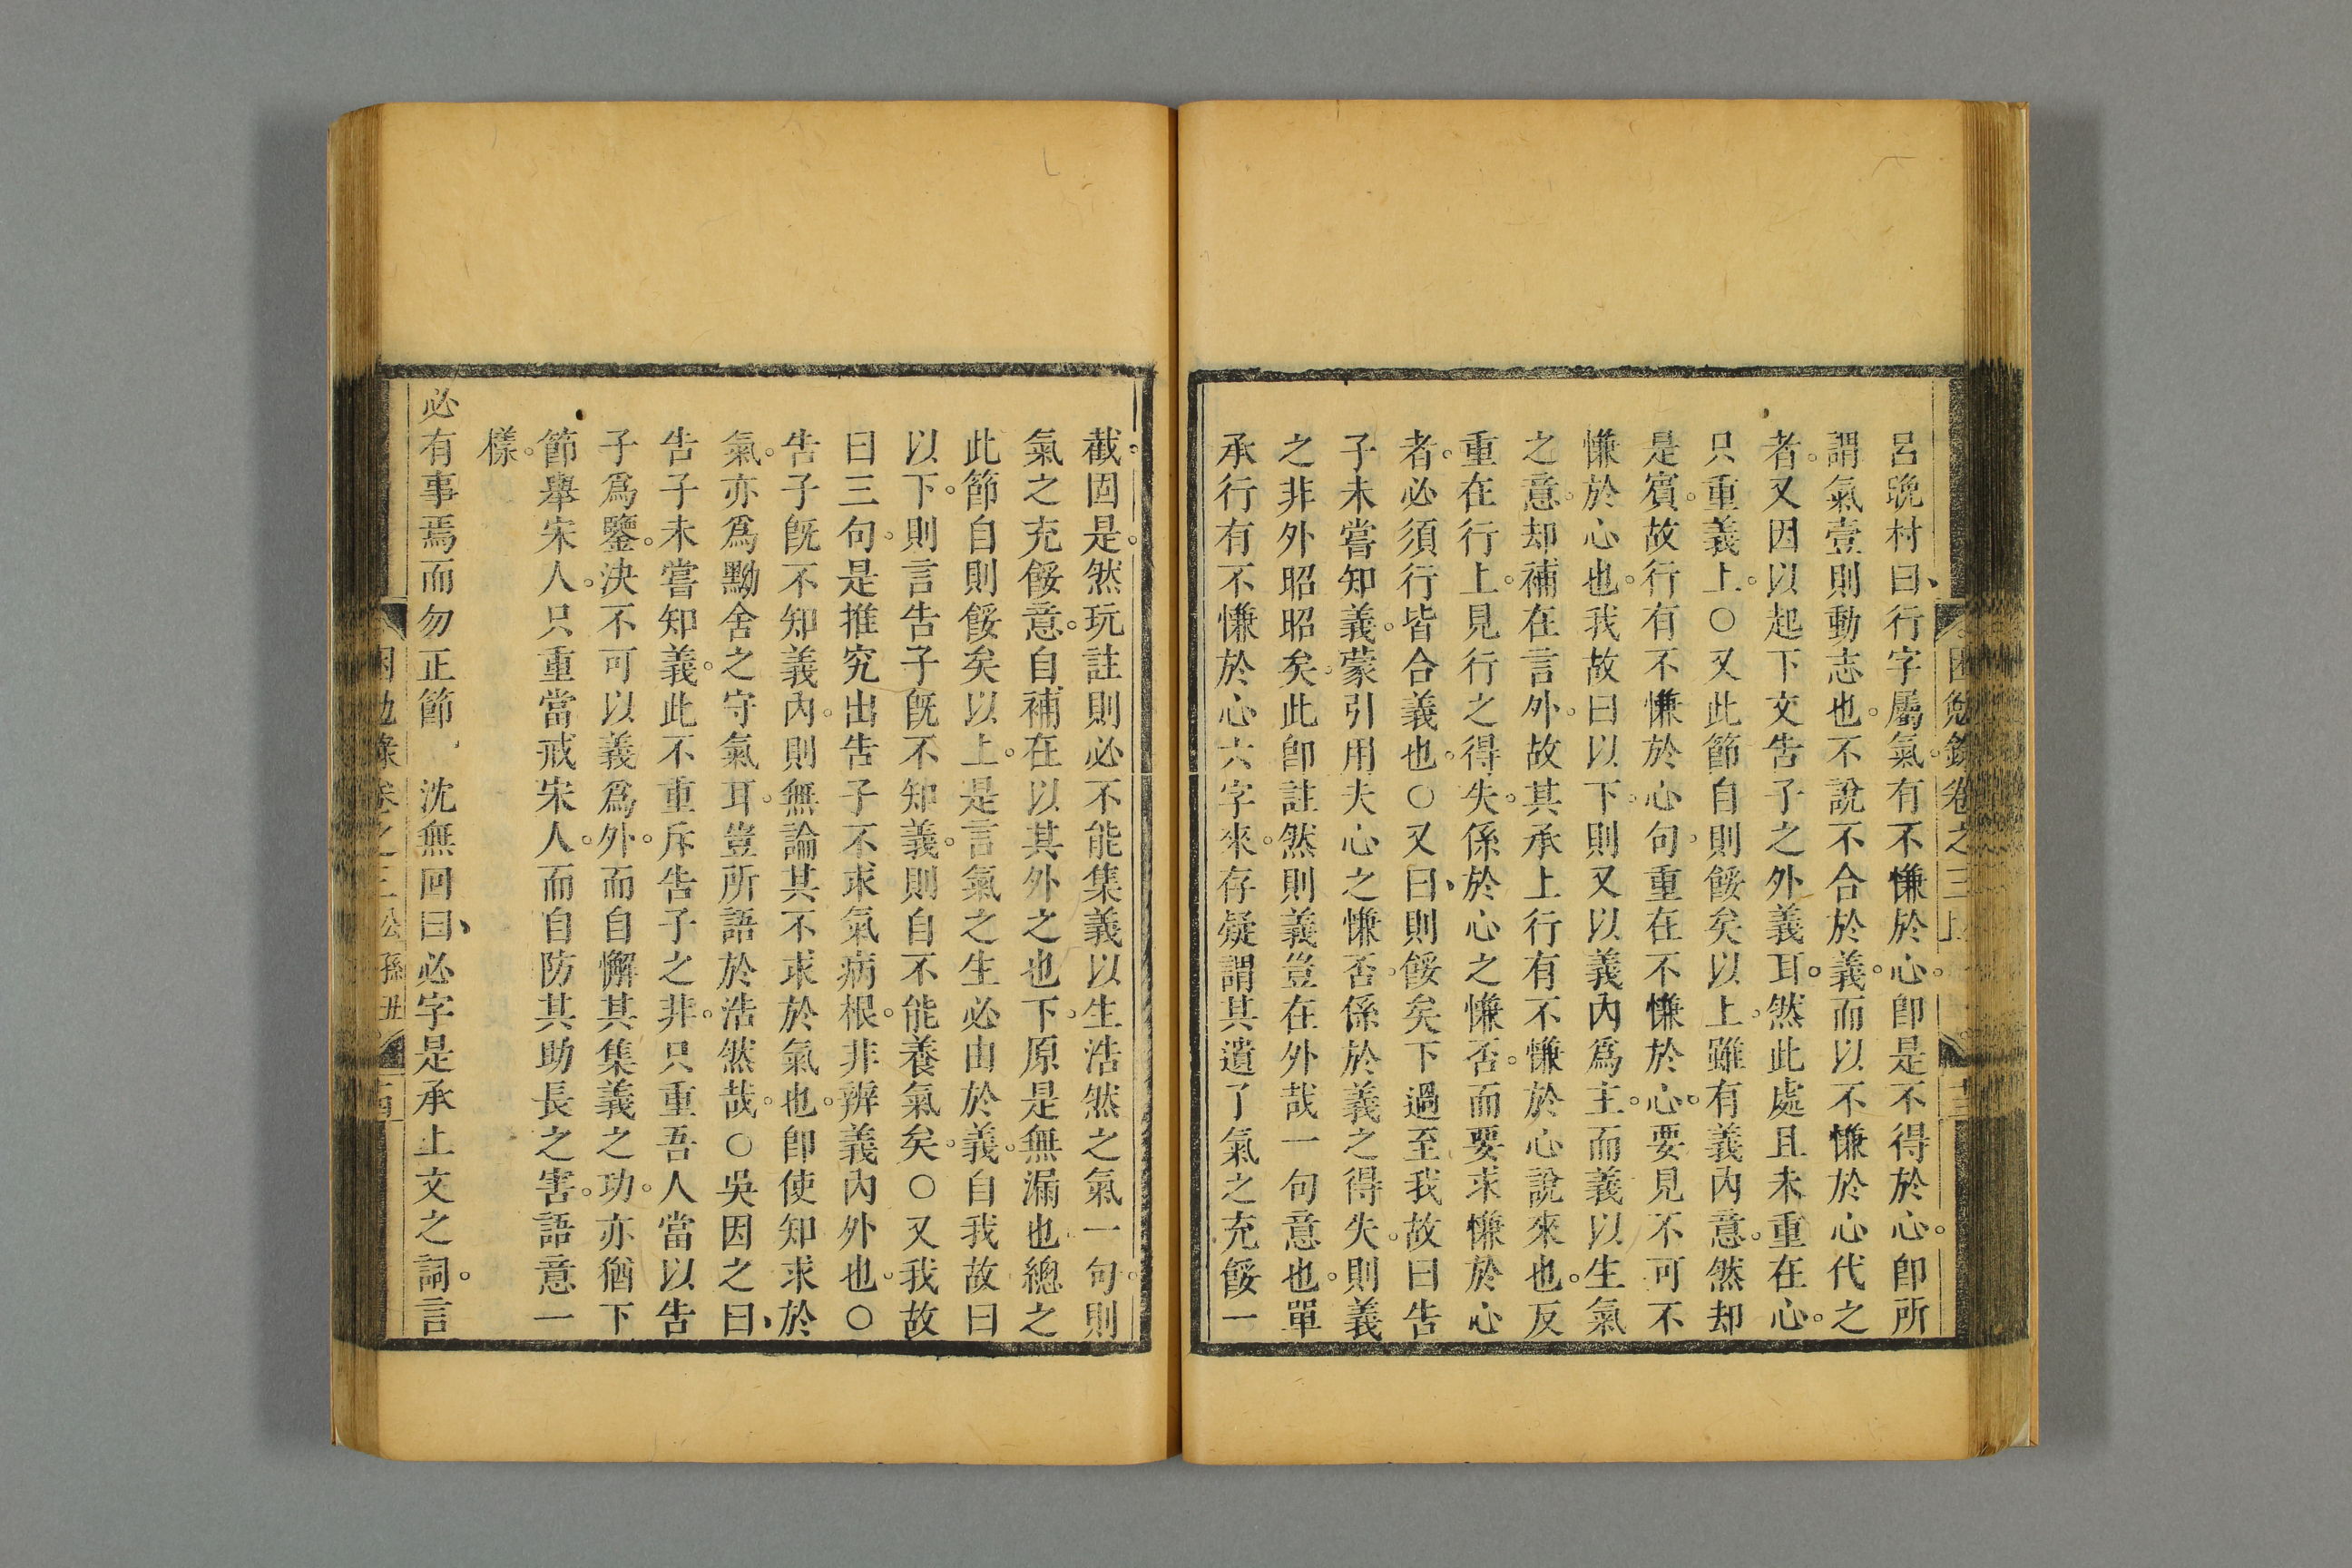 呂晚村曰行字屬氣有不慊於心卽是不得於心卽所
謂氣壹則動志也不說不合於義而以不慊於心代之
者又因以起下文告子之外義耳然此處且未重在心
只重義上○又此節自則餒矣以上雖有義內意然却
是賓故行有不慊於心句重在不慊於心要見不可不
慊於心也我故曰以下則又以義內爲主而義以生氣
之意却補在言外故其承上行有不慊於心說來也反
重在行上見行之得失係於心之慊否而要求慊於心
者必須行皆合義也○又曰則餒矣下過至我故曰告
子未嘗知義蒙引用夫心之慊否係於義之得失則義
之非外昭昭矣此卽註然則義豈在外哉一句意也單
承行有不慊於心六字來存疑謂其遺了氣之充餒一
困勉錄卷之三上
截固是然玩註則必不能集義以生浩然之氣一句則
氣之充餒意自補在以其外之也下原是無漏也總之
此節自則餒矣以上是言氣之生必由於義自我故曰
以下則言告子旣不知義則自不能養氣矣○又我故
曰三句是推究出告子不求氣病根非辨義內外也○
告子旣不知義內則無論其不求於氣也卽使知求於
氣亦爲黝舍之守氣耳豈所語於浩然哉○吳因之曰
告子未嘗知義此不重斥告子之非只重吾人當以告
子爲鑒決不可以義爲外而自懈其集義之功亦猶下
節舉宋人只重當戒宋人而自防其助長之害語意一
樣
必有事焉而勿正節 沈無回曰必字是承上文之詞言
困勉錄卷之三公孫丑